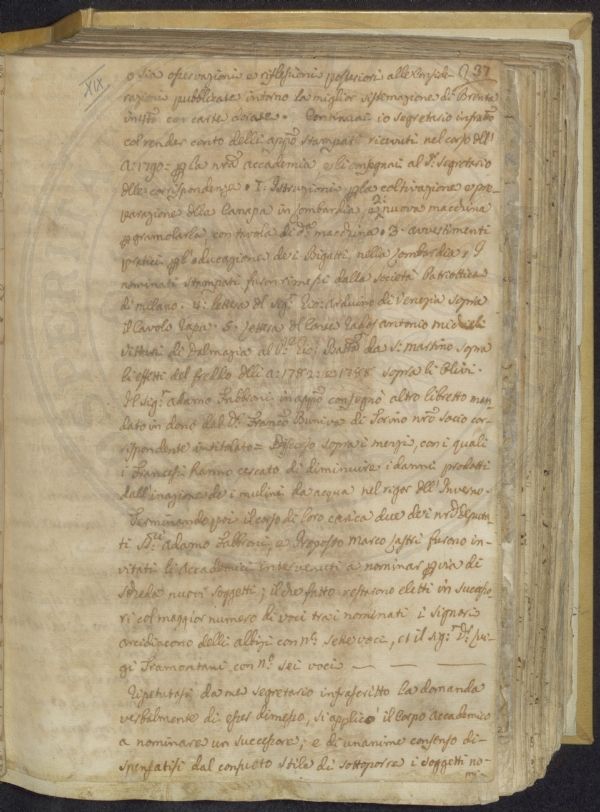 XIX
37
o sia osservazioni e riflessioni posteriori alle Conside-
razioni pubblicate intorno la miglior sistemazione di Brenta
in 8º con carte doiate. Continuai io Segretario infratto
col render conto delli appo stampati ricevuti nel corso dell'
a: 1790: la nra accademia e li consegnai al Sr. Segretario
delle corrispondenze. 1. Istruzioni la coltivazione e pre-
parazione della Canapa in Lombardia, 2: nuova macchina
gramolarla con tavola di da macchina. 3. avvertimenti
pratici l'educazione de i Bigatti nella Lombardia, I
nominati stampati furon rimessi dalla Società Patriottica
di milano. 4: lettera del Sigr Gio: Arduino di Venezia sopra
il Cavolo Rapa. 5. Lettera del antonio
Vitturi di Dalmazia al Gio: Batta da S. Martino sopra
li effetti del freddo delli a: 1782: e: 1788 sopra li olivi.
Il Sigr adamo Fabbroni in appo consegnò altro libretto man-
dato in dono dal Dr. Franco Buniva di Torino nro Socio cor-
rispondente intitolato = Discorso sopra i menzi, con i quali
i Francesi hanno cercato di diminuire i danni prodotti
dall'inazione de i mulini da acqua nel rigor dell'Inverno.
Terminando poi il corso di loro carica due de i nri Deputa-
ti Sri Adamo Fabbroni, e Proposto Marco Lastri furono in-
vitati li Accademici intervenuti a nominar via di
scheda nuovi soggetti; il che fatto restarono eletti in successo-
ri col maggior numero di voci tra i nominati i signori
arcidiacono delli albizi con no. sette voci, et il sigr Dr. Lui-
gi Tramontani con no. sei voci — — —
Ripetutasi da me segretario infrascritto la domanda
verbalmente di esser dimesso, si applicò il Corpo accademico
a nominare un successore; e di unanime consenso di-
spensatisi dal consueto stile di sottoporre i soggetti no-
mi-